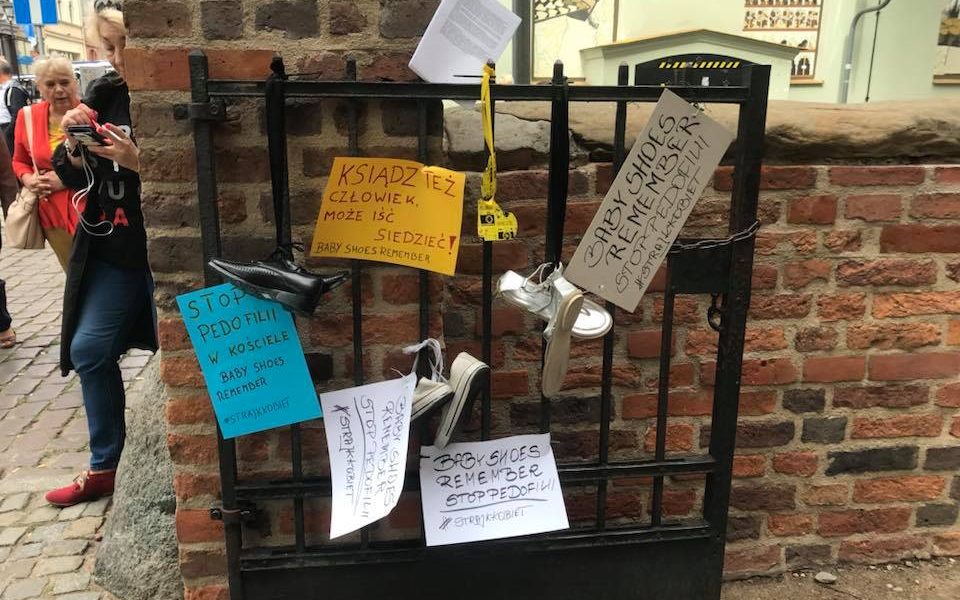 KSIĄDZ TEŻ
CZŁOWIEK,
MOŻE IŚĆ
SIEDZIEĆ!
BABY SHOES REMEMBER
BABY SHOES
REMEMBER
STOP PEDOFILII
#STRAJKKOBIET
STOP
PEDOFILII
W KOŚCIELE
BABY SHOES
REMEMBER
#STRAJKKOBIET
BABY SHOES
REMEMBER
STOP PEDOFILII
#STRAJKKOBIET
BABY SHOES
REMEMBER
STOP PEDOFILII
#STRAJKKOBIET